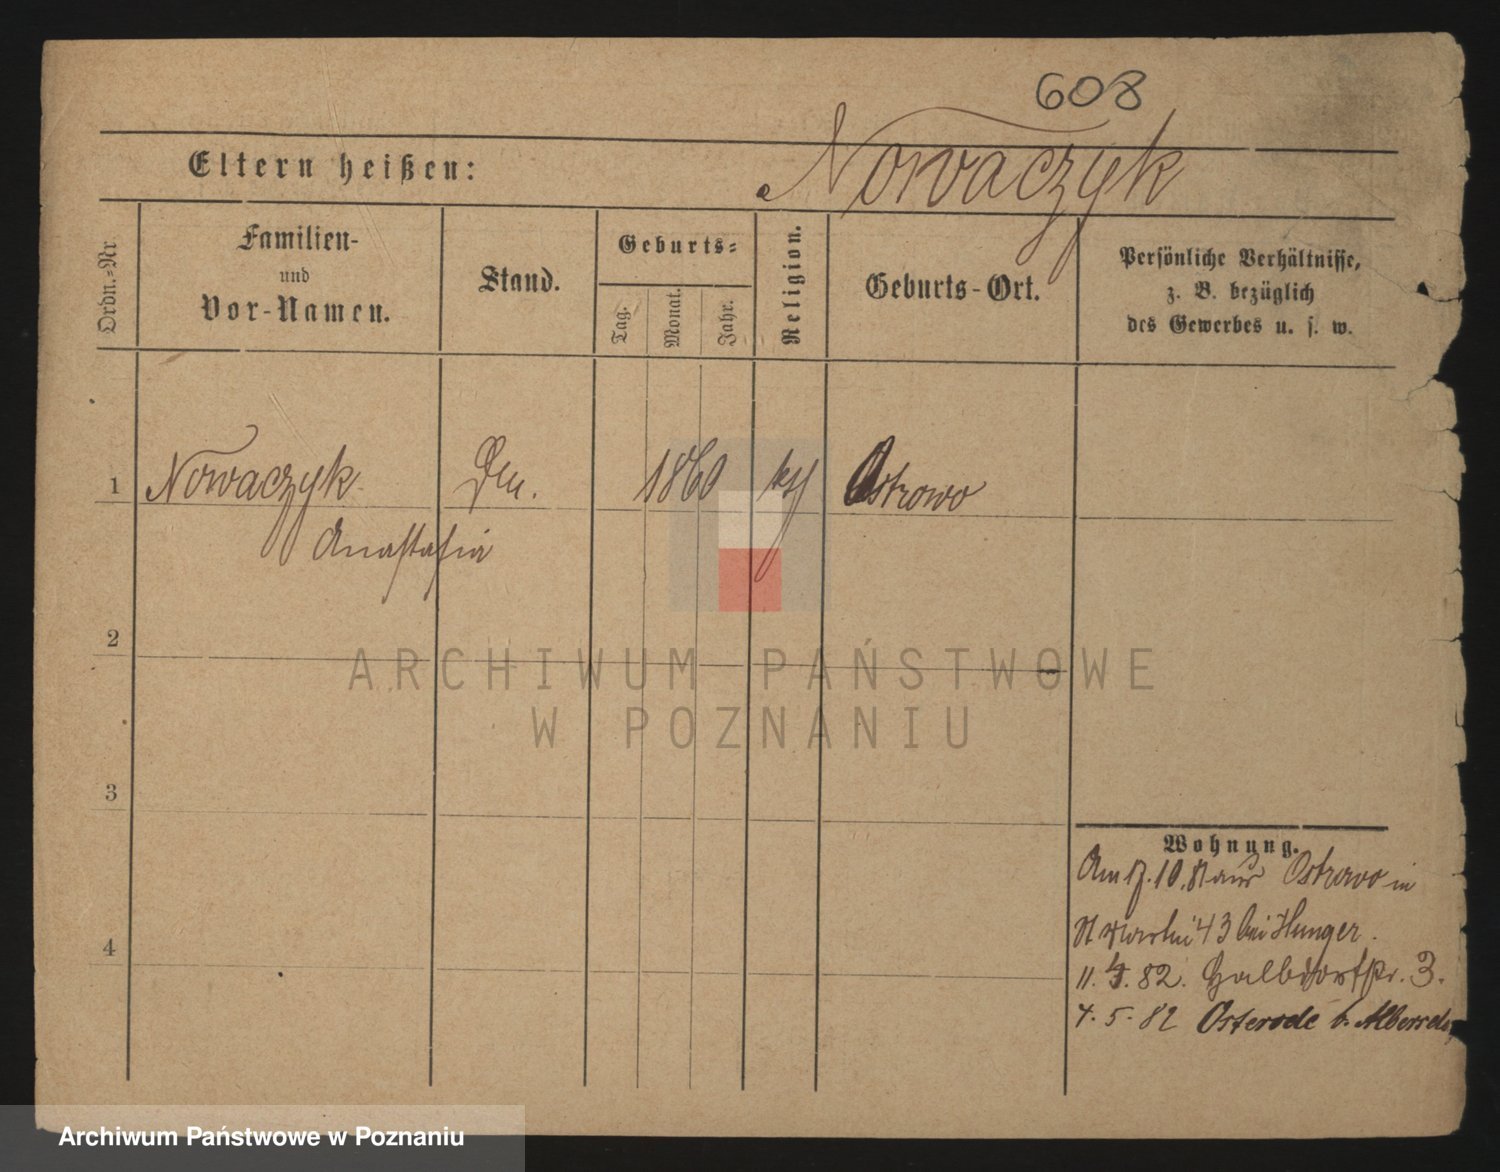 608
Eltern heißen:
Nowaczyk
Ordn.-Nr
Familien-
und
Vor-Namen.
Stand.
Geburts-
Tag.
Monat.
Jahr.
Religion.
Geburts-Ort.
Persönliche Verhältnisse,
z. B. bezüglich
des Gewerbes u. s. w.
1 Nowaczyk 1860 Ostrowo
Anastasia
2
3
4
Wohnung.
Am 17.10.81 aus Ostrowo in
St Martin 43 bei Hunger.
11. 4. 82. Halbdorfstr. 3.
4. 5. 82 Osterode b.
ARCHIWUM PAŃSTWOWE
W POZNANIU
Archiwum Państwowe w Poznaniu